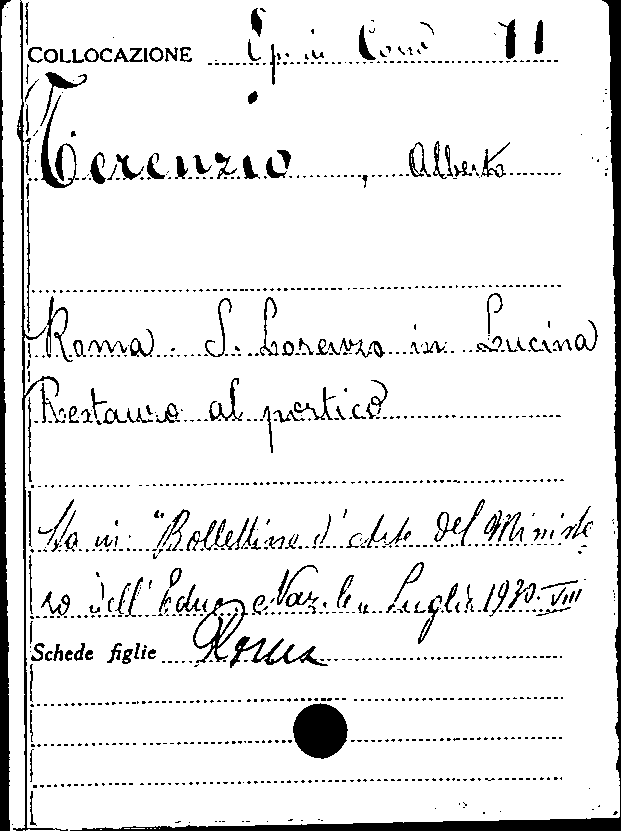 COLLOCAZIONE Op. in Cons 11
Terenzio, Alberto
Roma. S. Lorenzo in Lucina
Restauro al portico
Sta in: "Bollettino d'Arte del Ministe
ro dell'Educ. Naz.le" Luglio 1930-VIII
Schede figlie Roma